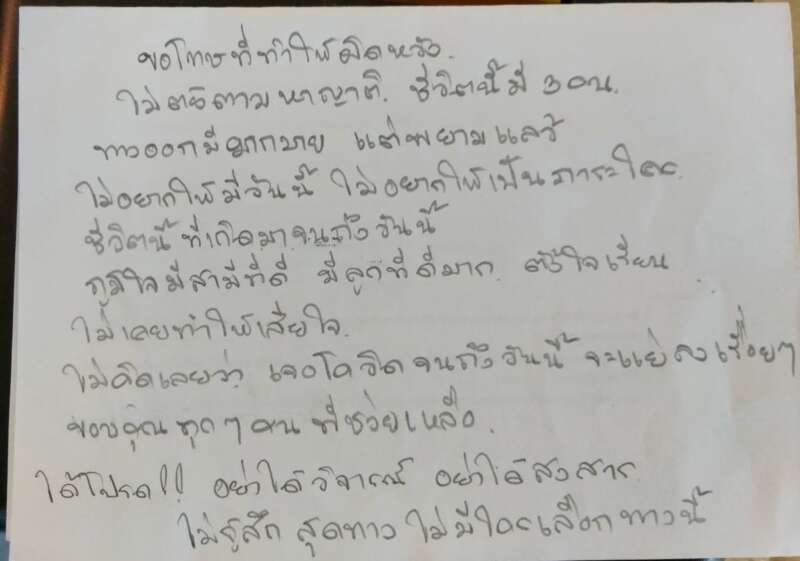 ขอโทษที่ทำให้ผิดหวัง.
ไม่ต้องตามหาญาติ. ชีวิตนี้มี 3 คน.
ทางออกมีมากมาย แต่พยามแล้ว
ไม่อยากให้มีวันนี้ ไม่อยากให้เป็นภาระใคร
ชีวิตนี้ที่เกิดมาจนถึงวันนี้
ภูมิใจมีสามีที่ดี มีลูกที่ดีมาก ตั้งใจเรียน
ไม่เคยทำให้เสียใจ.
ไม่คิดเลยว่า เจอโควิดจนถึงวันนี้ จะแย่ลงเรื่อยๆ
ขอบคุณทุกๆ คน ที่ช่วยเหลือ.
ได้โปรด!! อย่าได้วิจารณ์ อย่าได้สงสาร
ไม่รู้สึก สุดทาง ไม่มีใครเลือกทางนี้